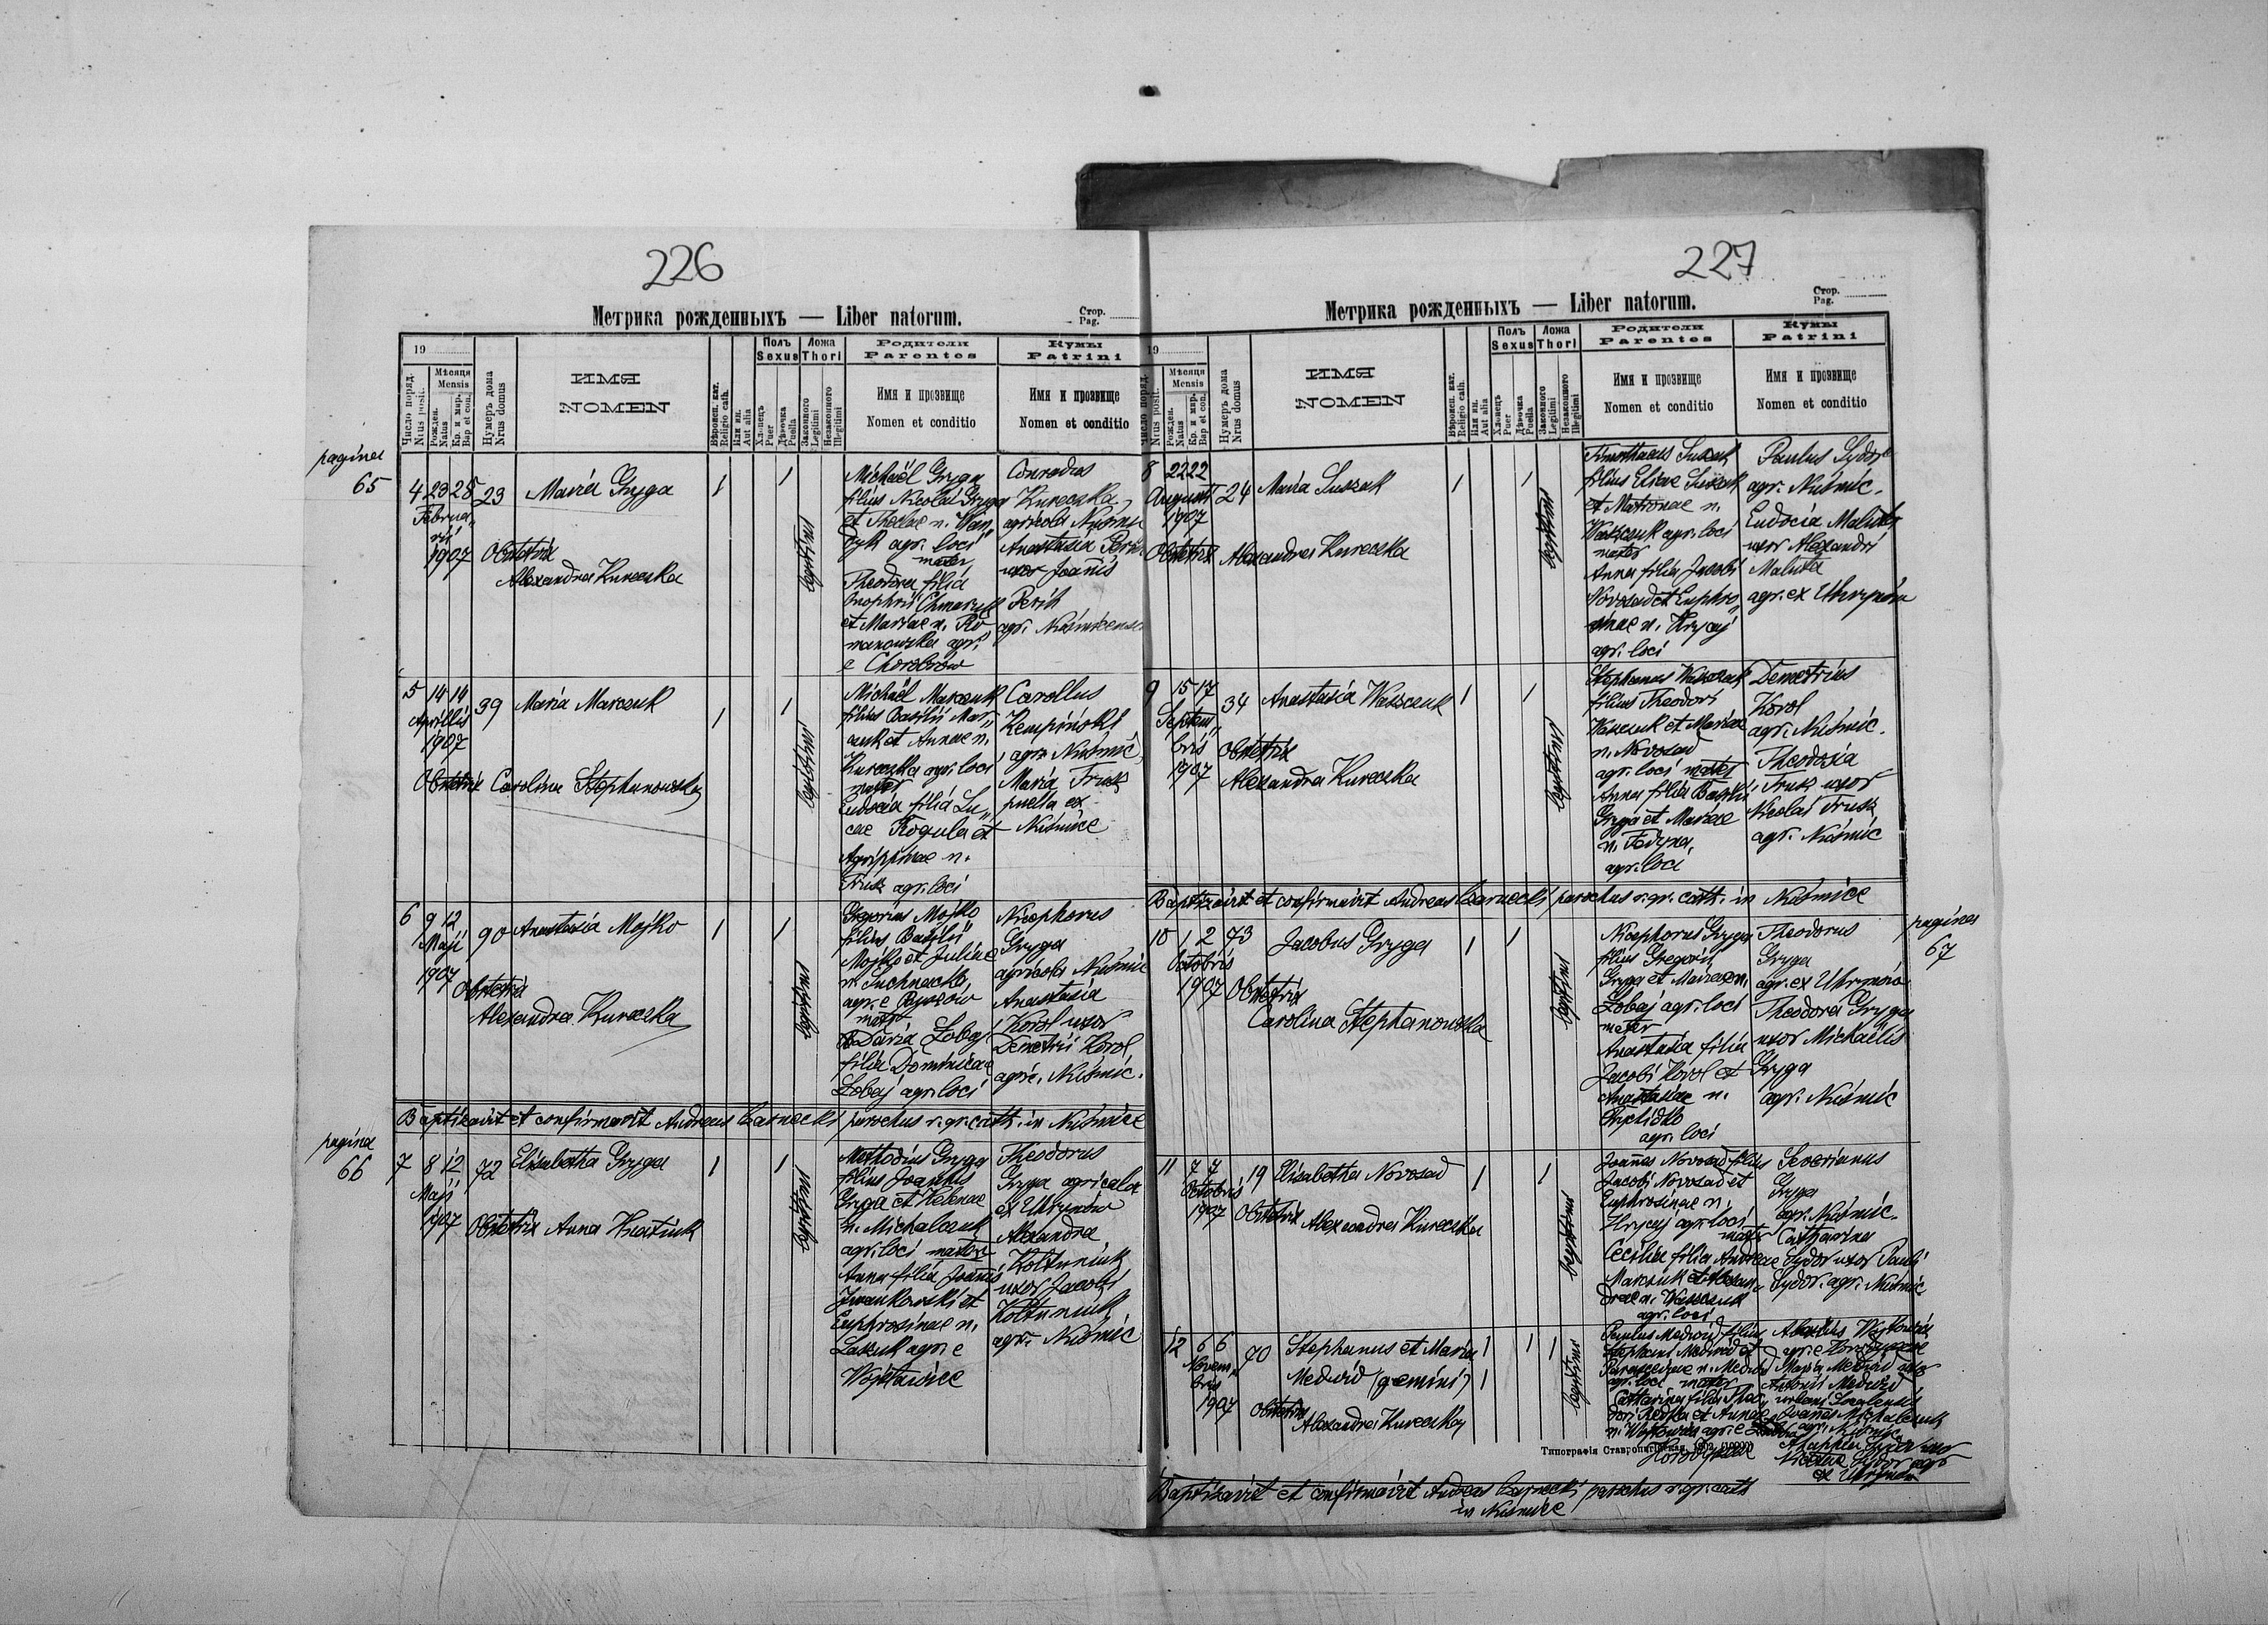 226
Метрика рожденныхъ — Liber natorum.
Стор.
Pag.
19
Число поряд.
Nrus posit.
Мѣсяця
Mensis
Рожден.
Natus
Кр. и мир.
Bap et con.
Нумеръ дома
Nrus domus
ИМЯ
NOMEN
Вѣроисп. кат.
Religio cath.
Или ин.
Aut alia
Полъ
Sexus
Хлопецъ
Puer
Дѣвочка
Puella
Ложа
Thori
Законного
Legitimi
Незаконного
Illegitimi
Родители
Parentes
Имя и прозвище
Nomen et conditio
Кумы
Patrini
Имя и прозвище
Nomen et conditio
pagina
65
4 23 28 23 Maria Gryga 1 1
Februa„
rii
1907
Obstetrix
Alexandra Kureczka
legitimi
Michaël Gryga
filius Nicolai Gryga
et Theclae n. Wan„
dyk agr. loci
mater
Theodora filia
Onophrii Chmaruk
et Mariae n. Ro„
manowska agr.
e Chorobrów
Conradus
Kureczka
agricola
Anastasia
uxor Joannis
Perih
agr.
5 14 14 39 Maria Marczuk 1 1
Aprilis
1907
Obstetrix Carolina Stephanowska
legitimi
Michaël Marczuk
filius Basilii Mar„
czuk et Annae n.
Kureczka agr. loci
mater
Eudocia filia Lu„
cae Rogula et
Agrippinae n.
Trusz agr. loci
Carollus
Kempiński
agr. Nuśmic.
Maria Trusz
puella ex
Nuśmice
6 9 12 90 Anastasia Mojko 1 1
Maji
1907
Obstetrix
Alexandra Kureczka
legitimi
Gregorius Mojko
filius Basilii
Mojko et Juliae
n. Suchnacka
agr. e Byszów
mater
Daria Lobaj
filia Dominicae
Lobaj agr. loci
Nicephorus
Gryga
agricola Nuśmice
Anastasia
Korol uxor
Demetrii Korol
agric. Nuśmic.
Baptizavit et confirmavit Andreas Czarnecki parochus r. gr. cath. in Nuśmice
pagina
66
7 8 12 72 Elisabetha Gryga 1 1
Maji
1907 Obstetrix Anna Kwatiuk
legitimi
Methodius Gryga
filius Joannis
Gryga et Helenae
n. Michalczuk
agr. loci mater
Anna filia Joannis
Iwankowski et
Euphrosinae n.
Laszuk agr. e
Wojsławice
Theodorus
Gryga agricola
ex Uhrynów
Alexandra
Koltuniuk
uxor Jacobi
Koltuniuk
agr. Nuśmic
227
Метрика рожденныхъ — Liber natorum.
Стор.
Pag.
19
Число поряд.
Nrus posit.
Мѣсяця
Mensis
Рожден.
Natus
Кр. и мир.
Bap et con.
Нумеръ дома
Nrus domus
ИМЯ
NOMEN
Вѣроисп. кат.
Religio cath.
Или ин.
Aut alia
Полъ
Sexus
Хлопецъ
Puer
Дѣвочка
Puella
Ложа
Thori
Законного
Legitimi
Незаконного
Illegitimi
Родители
Parentes
Имя и прозвище
Nomen et conditio
Кумы
Patrini
Имя и прозвище
Nomen et conditio
8 22 22 24 Maria Suszuk 1 1
Augusti
1907
Obstetrix Alexandra Kureczka
legitimi
Timotheus Suszuk
filius Eliae Suszuk
et Matronae n.
Waszczuk agr. loci
mater
Anna filia Jacobi
Novosad et Euphro„
sinae n. Hrycaj
agr. loci
Paulus Sydor
agr. Nuśmic.
Eudocia Maluta
uxor Alexandri
Maluta
agr. ex Uhrynów
9 15 17 34 Anastasia Waszczuk 1 1
Septem„
bris
1907
Obstetrix
Alexandra Kureczka
legitimi
Stephanus Waszczuk
filius Theodori
Waszczuk et Mariae
n. Novosad
agr. loci mater
Anna filia Basilii
Gryga et Mariae
n. Fedyna,
agr. loci
Demetrius
Korol
agr. Nuśmic.
Theodosia
Trusz uxor
Nicolai Trusz
agr. Nuśmic
Baptizavit et confirmavit Andreas Czarnecki parochus r. gr. cath. in Nuśmice
pagina
67
10 1 2 73 Jacobus Gryga 1 1
Octobris
1907 Obstetrix
Carolina Stephanowska
legitimi
Nicephorus Gryga
filius Gregorii
Gryga et Mariae n.
Lobaj agr. loci
mater
Anastasia filia
Jacobi Korol et
Anastasiae n.
Prychidko
agr. loci
Theodorus
Gryga
agr. ex Uhrynów
Theodora Gryga
uxor Michaëlis
Gryga
agr. Nuśmic
11 7 7 19 Elisabetha Novosad 1 1
Octobris
1907 Obstetrix Alexandra Kureczka
legitimi
Joannes Novosad filius
Jacobi Novosad et
Euphrosinae n.
Hrycaj agr. loci
mater
Cecilia filia Andreae
Marczuk et Alexan„
drae n. Waszczuk
agr. loci
Severianus
Gryga
agr. Nuśmic.
Catharina
Sydor uxor Pauli
Sydor. agr. Nuśmic
12 6 6 70 Stephanus et Maria 1 1 1
Novem„
bris
1907
Medwid (gemini) 1
Obstetrix
Alexandra Kureczka
legitimi
Paulus Medwid filius
Stephani Medwid et
Parasceviae n. Medwid
agr. loci mater
Catharina filia Theo„
dori et Annae
n. agr. e
Maria Medwid uxor
Antonii Medwid
Joannes Michalczuk
agr. Nuśmic
Agaphia Sydor uxor
Sydor agr.
ex Uhrynów
Типографія Ставропигійская
Baptizavit et confirmavit Andreas Czarnecki parochus r. gr. cath
in Nuśmice